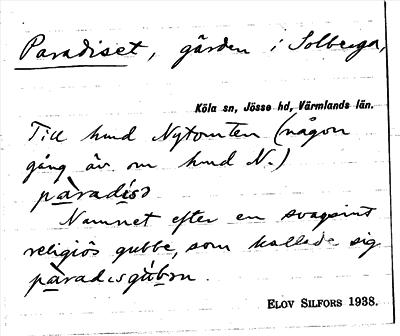 Paradiset, gården i Solberga,
Köla sn, Jösse hd, Värmlands län.
Till hmd Nytomten (någon
gång äv. om hmd N.)
paradisə
Namnet efter en svagsint
religiös gubbe, som kallade sig
paradisgubən.
ELOV SILFORS 1938.